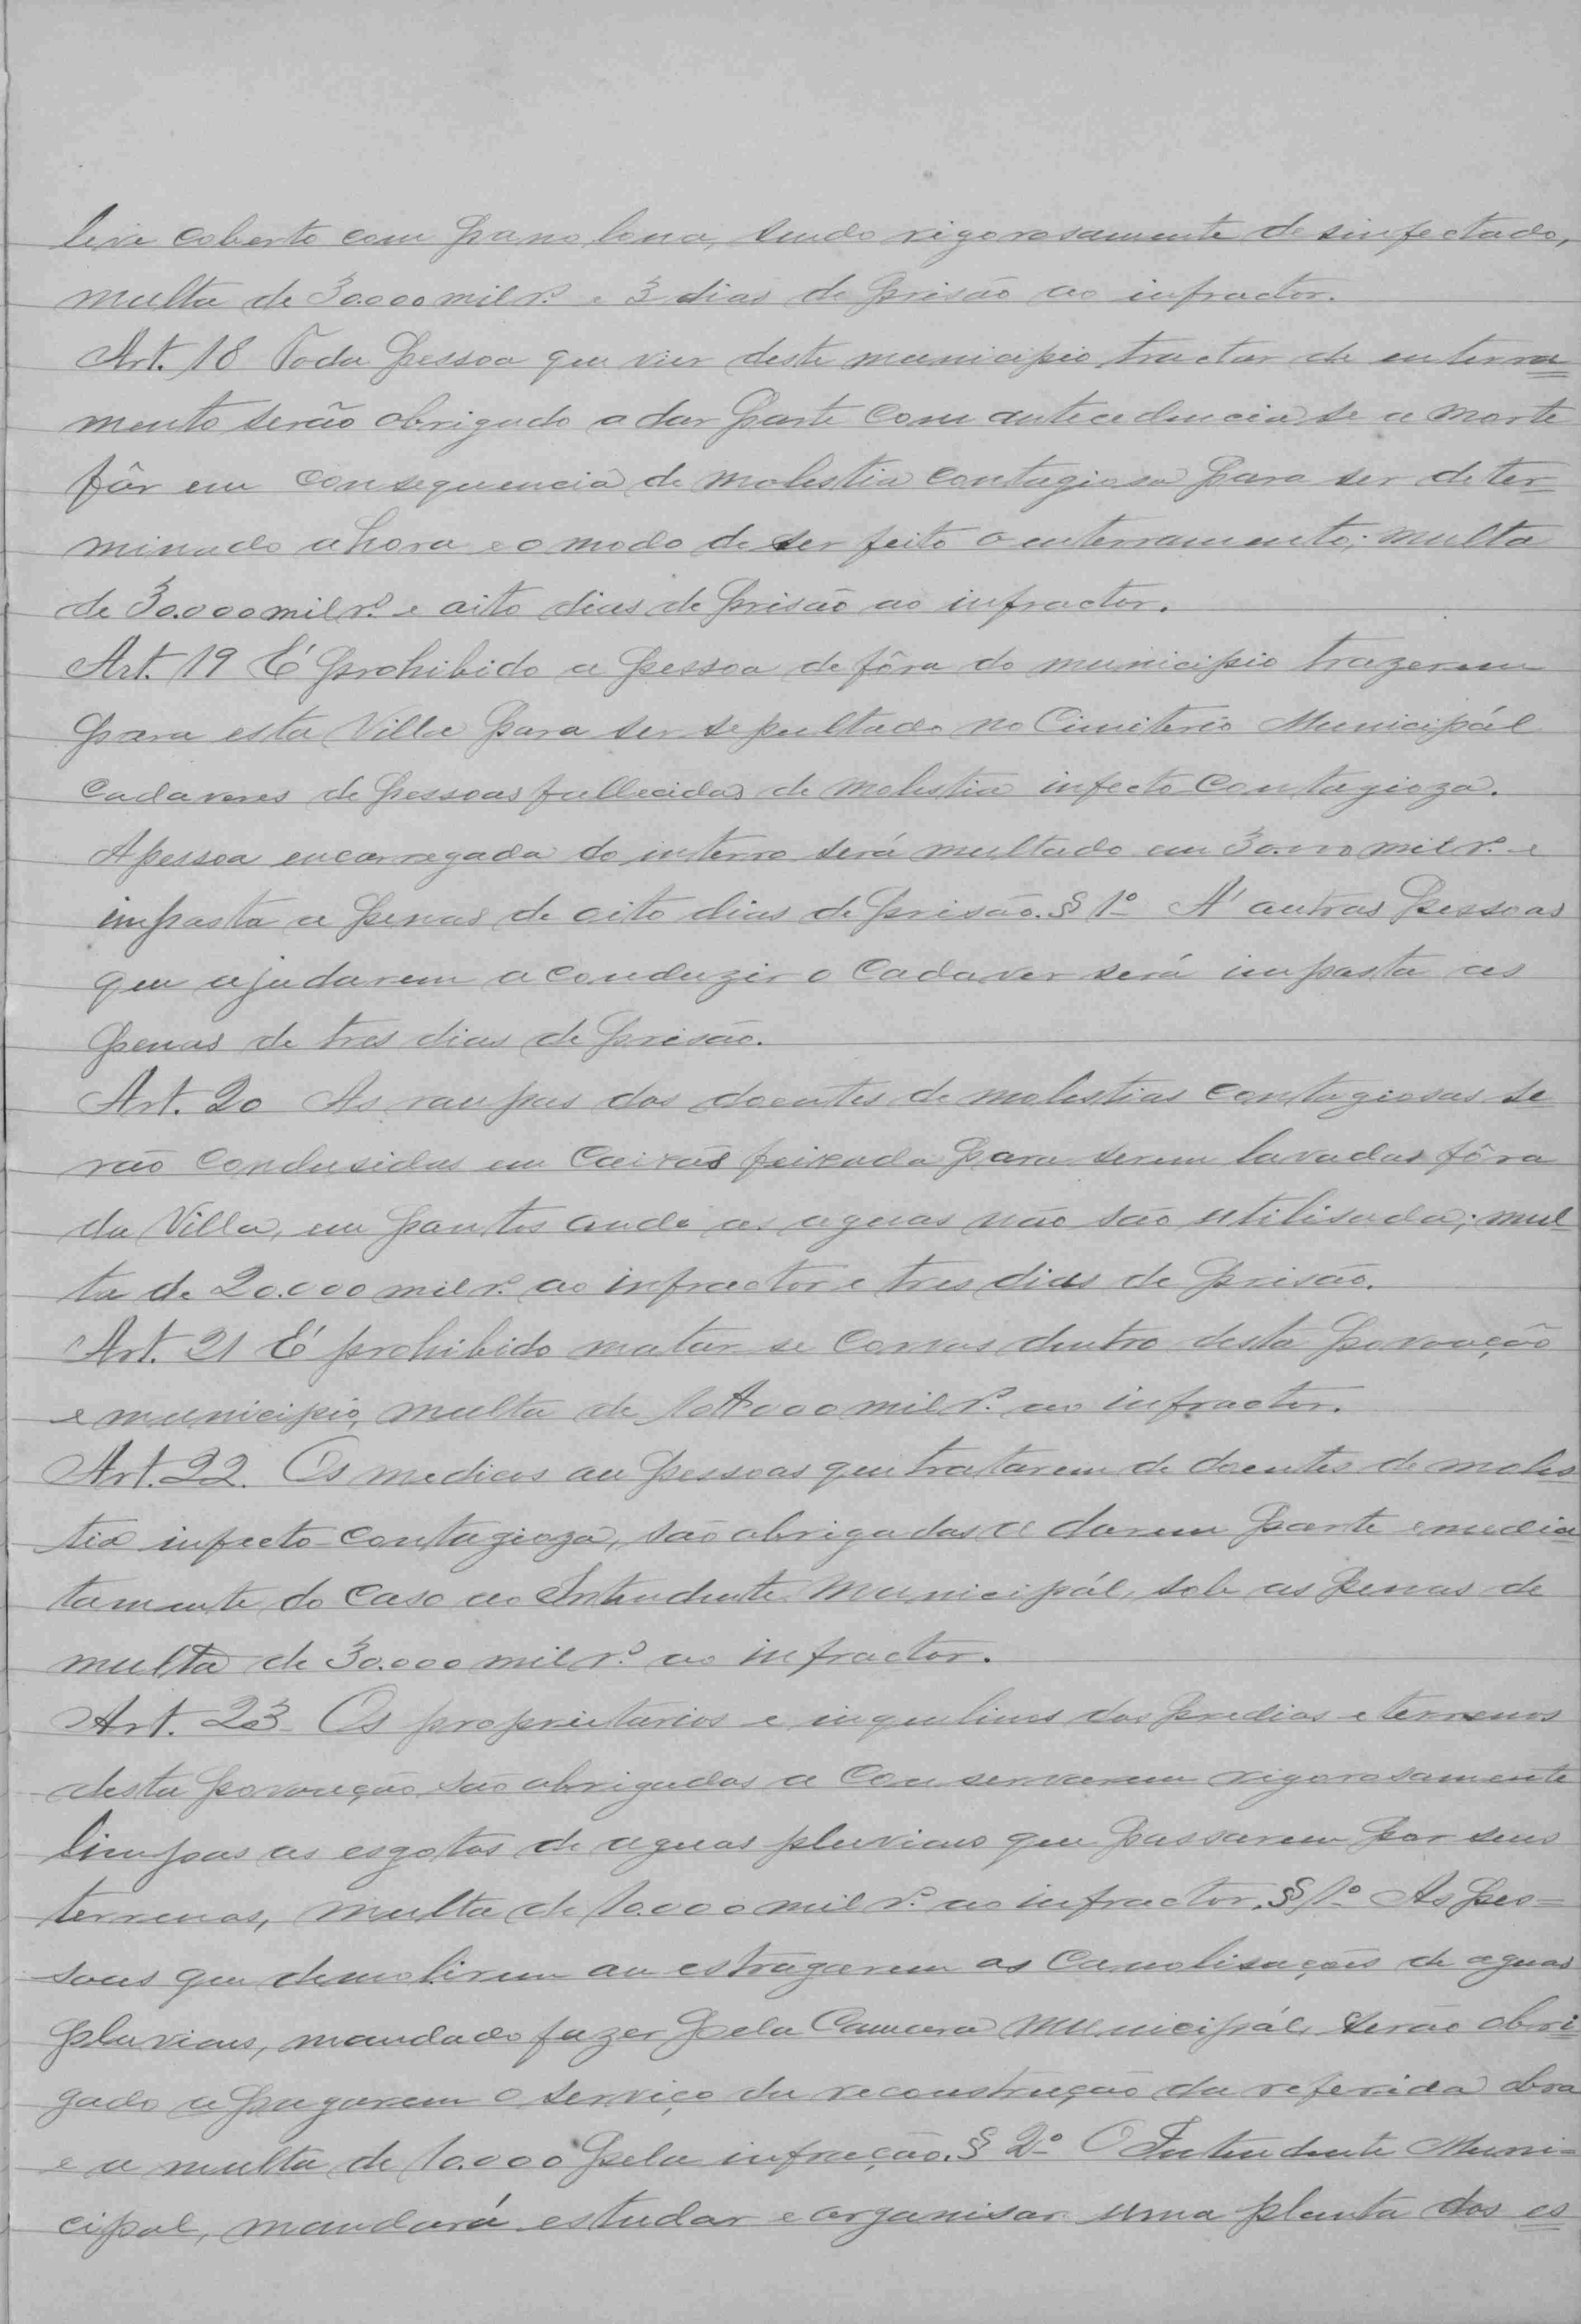 leve coberto com pano lona, sendo rigorosamente desinfectado,
multa de 30.000 mil r.s e 3 dias de prisão ao infractor.
Art. 18 Toda pessoa que vier deste municipio tractar de enterra=
mento serão obrigado a dar parte com antecedencia se a morte
fôr em consequencia de molestia contagiosa para ser deter=
minado a hora e o modo de ser feito o enterramento; multa
de 30.000 mil r.s e oito dias de prisão ao infractor.
Art. 19 É prohibido a pessoa de fôra do municipio trazerem
para esta Villa para ser sepultado no Cimiterio Municipál
cadaveres de pessoas fallecidas de molestia infecto contagioza.
A pessoa encarregada do interro será multado em 30.000 mil r.s e
imposta a penas de oito dias de prisão. § 1º A' outras pessoas
que ajudarem a conduzir o cadaver será imposta as
penas de tres dias de prisão.
Art. 20 As roupas dos doentes de molestias contagiosas se
rão condusidas em caixas feixada para serem lavadas fôra
da Villa, em pontos onde as aguas não são utilisada; mul=
ta de 20.000 mil r.s ao infractor e tres dias de prisão.
Art. 21 É prohibido matar se corvos dentro desta povoação
e municipio, multa de 10.000 mil r.s ao infractor.
Art. 22. Os medicos ou pessoas que tratarem de doentes de moles
tia infecto-contagioza, são obrigadas a darem parte emedia
tamente do caso ao Intendente Municipál, sob as penas de
multa de 30.000 mil r.s ao infractor.
Art. 23 Os proprietarios e inquilinos dos predios e terrenos
desta povoação são obrigados a conservarem rigorosamente
limpos os esgotos de aguas pluviaes que passarem por seus
terrenos, multa de 10.000 mil r.s ao infractor. § 1º As pes=
soas que demolirem ou estragarem as canolisações de aguas
pluviaes, mandado fazer pela Camara Municipál, serão obri
gado a pagarem o serviço da reconstrução da referida obra
e a multa de 10.000 pela infracção. § 2º O Intendente Muni=
cipal, mandará estudar e organisar uma planta dos es